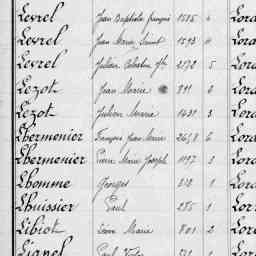 Levrel Jean Baptiste françois 1585 4 Lora
Levrel Jean Marie 1593 4 Lora
Levrel Julien 2172 5 Lora
Lezot Jean Marie 891 2 Lora
Lezot Julien Marie 1431 3 Lora
Lhermenier François Jean Marie 6 Lora
Lhermenier Pierre Marie Joseph 1197 3 Lor
Lhomme Georges 1 Lor
Lhuissier Paul 285 1 Lor
Libiot Marie 801 2 Lor
Lianel Paul